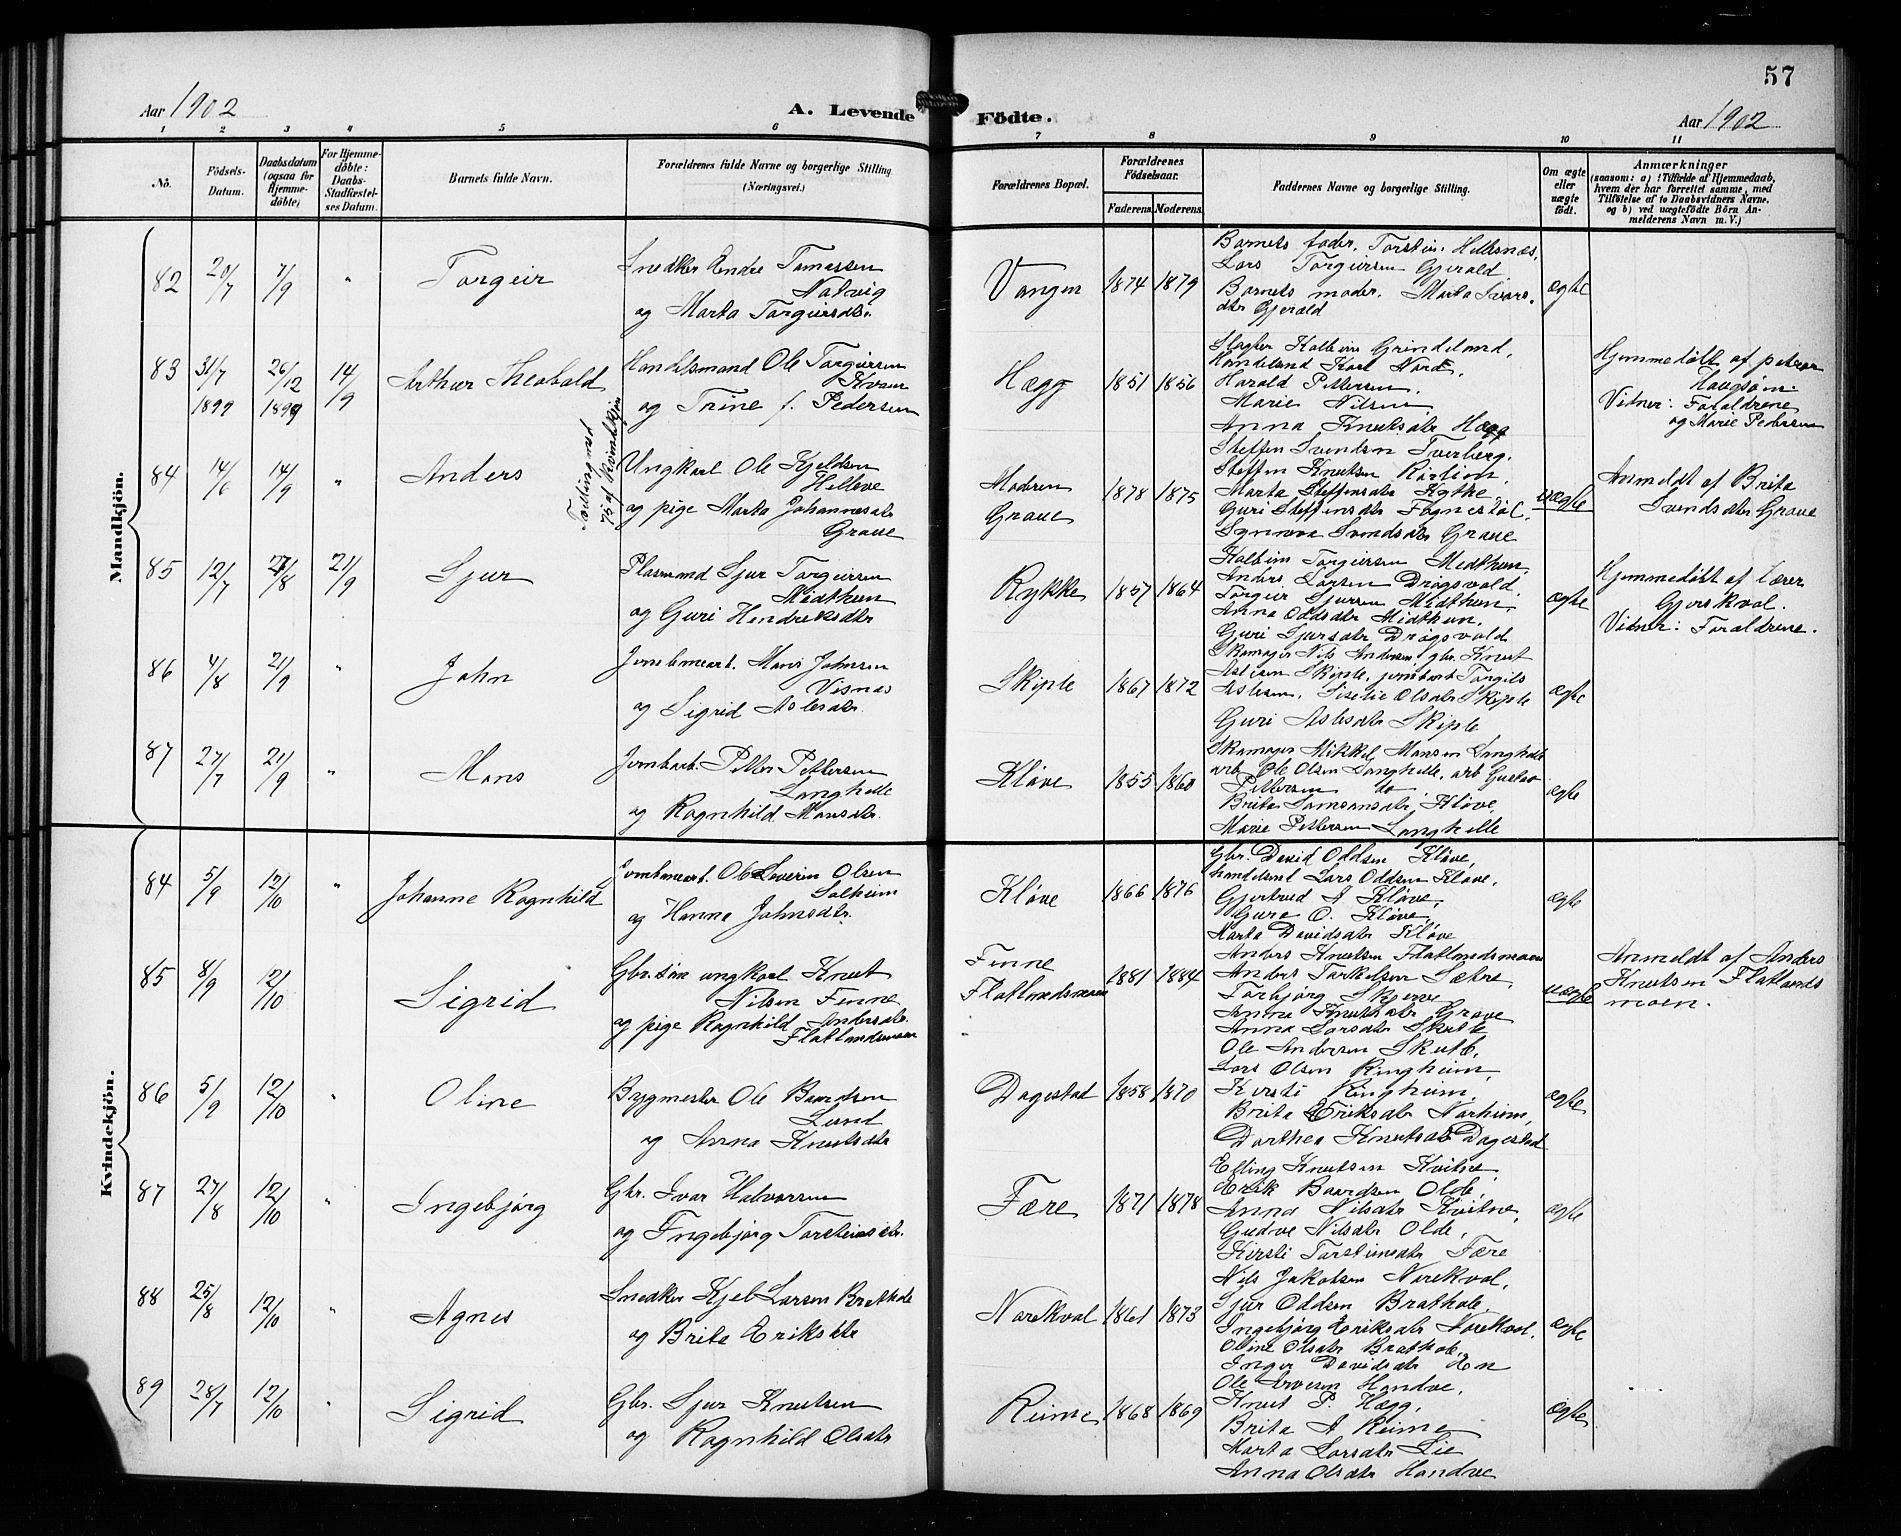 57
Aar 1902
A. Levende Födte.
Aar 1902
1 2 3 4 5 6 7 8 9 10 11
No.
Födsels-Datum.
Daabsdatum (ogsaa for Hjemme-döbte)
For Hjemme-döbte: Daabs-Stadfæstel-ses Datum.
Barnets fulde Navn.
Forældrenes fulde Navne og borgerlige Stilling. (Næringsvei.)
Forældrenes Bopæl.
Forældrenes Födselsaar.
Faderens. Moderens.
Faddernes Navne og borgerlige Stilling.
Om ægte eller uægte födt.
Anmærkninger
(saasom: a) i Tilfælde af Hjemmedaab,
hvem der har forrettet samme, med
Tilföielse af to Daabsvidners Navne,
og b) ved uægtefödte Börn An-
melderens Navn m. V.)
Mandkjön.
82 20/7 7/9 " Torgeir
Snedker Endre Tomassen
Natvig
og Marta Torgeirsdtr.
Vangen 1874 1879
Barnets fader. Torstein Hellesnæs,
Lars Torgeirsen Gjerald
Barnets moder. Marta Ivars-
dtr Gjerald
ægte
83 31/7 1899 26/12 1899 14/9 Arthur Theobald
Handelsmand Ole Torgeirsen
Kvam
og Trine f. Pedersen
Hægg 1851 1856
Slagter Kolbein Grindeland,
Harald Pettersen,
Marie Nilsen,
Anna Knutsdtr Hægg
Hjemmedöbt af
Vidner: Forældrene
og Marie Pedersen
84 14/6 14/9 " Anders
Tvillingmed
75 af Kvindekjön
Ungkarl Ole Kjeldsen
Helleve
og pige Marta Johannesdtr
Graue
Modren
Graue
1878 1875
Steffen Svendsen Tverberg.
Steffen Knutsen
Marta Steffensdtr Kytke,
Guri Steffensdtr
Synneva Svendsdtr Graue
uægte
Anmeldt af Brita
Svendsdtr Graue
85 12/7 27/8 21/9 Sjur
Plasmand Sjur Torgeirsen
Midthun
og Guri Hendriksdtr
Rykke 1857 1864
Kolbein Torgeirsen Midthun,
Anders Larsen Drøgsvold.
Torgeir Sjursen Midthun,
Anna Oddsdtr Midthun.
Guri Sjursdtr Drøgsvold
ægte
Hjemmedöbt af Lærer
Gjerskvol.
Vidner: Forældrene.
86 4/8 21/9 " John
Jernbanearb. Mons Johnsen
Visnæs
og Sigrid Aslesdtr.
Skiple 1867 1872
Skomager Nils Andersen, gbr. Knut
Aslesen Skiple, jernbarb Torgils
Aslesen, Siselie Olsdtr Skiple
Guri Aslesdtr Skiple
ægte
87 27/7 21/9 " Mons
Jernbarb. Petter Pettersen
Langhelle
og Ragnhild Monsdtr.
Kløve 1855 1860
Skomager Mikkel Monsen Langhelle
arb Ole Olsen Langhelle, arb Gustav
Pettersen do
Brita Samsonsdtr, Kløve
Marie Pettersen Langhelle
ægte
Kvindekjön.
84 5/9 12/10 " Johanne Ragnhild
Jernbanearb. Ole Severin Olsen
Solheim
og Hanna Johnsdtr.
Kløve 1866 1876
Gbr. David Oddsen Kløve,
Lars Oddsen Kløve,
Gjertrud A Kløve,
Guro O. Kløve,
Marta Davidsdtr Kløve
ægte
85 8/9 12/10 Sigrid
Gbr.søn ungkarl Knut
Nilsen Finne
og pige Ragnhild Andersdtr.
Flatlandsmoen
Finne
Flatlandsmoen
1881 1884
Anders Knutsen Flatlandsmoen
Anders Torkelsen Sætre,
Torbjørg Skjerve
Anna Knutsdtr Graue
Anna Larsdtr Skutle
uægte
Anmeldt af Anders
Knutsen Flatlands
moen.
86 5/9 12/10 " Oline
Bygmester Ole Baardsen
Lund
og Anna Knutsdtr
Dagestad 1858 1870
Ole Andersen Skutle,
Lars Olsen Ringheim,
Kirsti Ringheim,
Brita Eriksdtr Norheim,
Dorthea Knutsdtr Dagestad
ægte
87 27/8 12/10 " Ingebjørg
Gbr. Ivar Halvorsen
og Ingebjørg Torsteinsdtr.
Fære 1871 1878
Elling Knutsen Kvitne,
Erik Baardsen Olde,
Anna Nilsdtr Kvitne,
Gudve Nilsdtr Olde,
Kirsti Torsteinsdtr Fære
ægte
88 25/8 12/10 " Agnes
Snedker Kjel Larsen Brathole
og Brita Eriksdtr
Norekval 1861 1873
Nils Jakobsen Norekval,
Sjur Oddsen Brathole,
Ingebjørg Eriksdtr Norekval.
Oline Olsdtr Brathole,
Inger Davidsdtr Øen
ægte
89 28/7 12/10 " Sigrid
Gbr. Sjur Knutsen
og Ragnhild Olsdtr
Reime 1868 1869
Ole Arvesen Handve,
Knut P. Hægg,
Brita A Reime
Marta Larsdtr Lie
Anna Olsdtr Handve
ægte